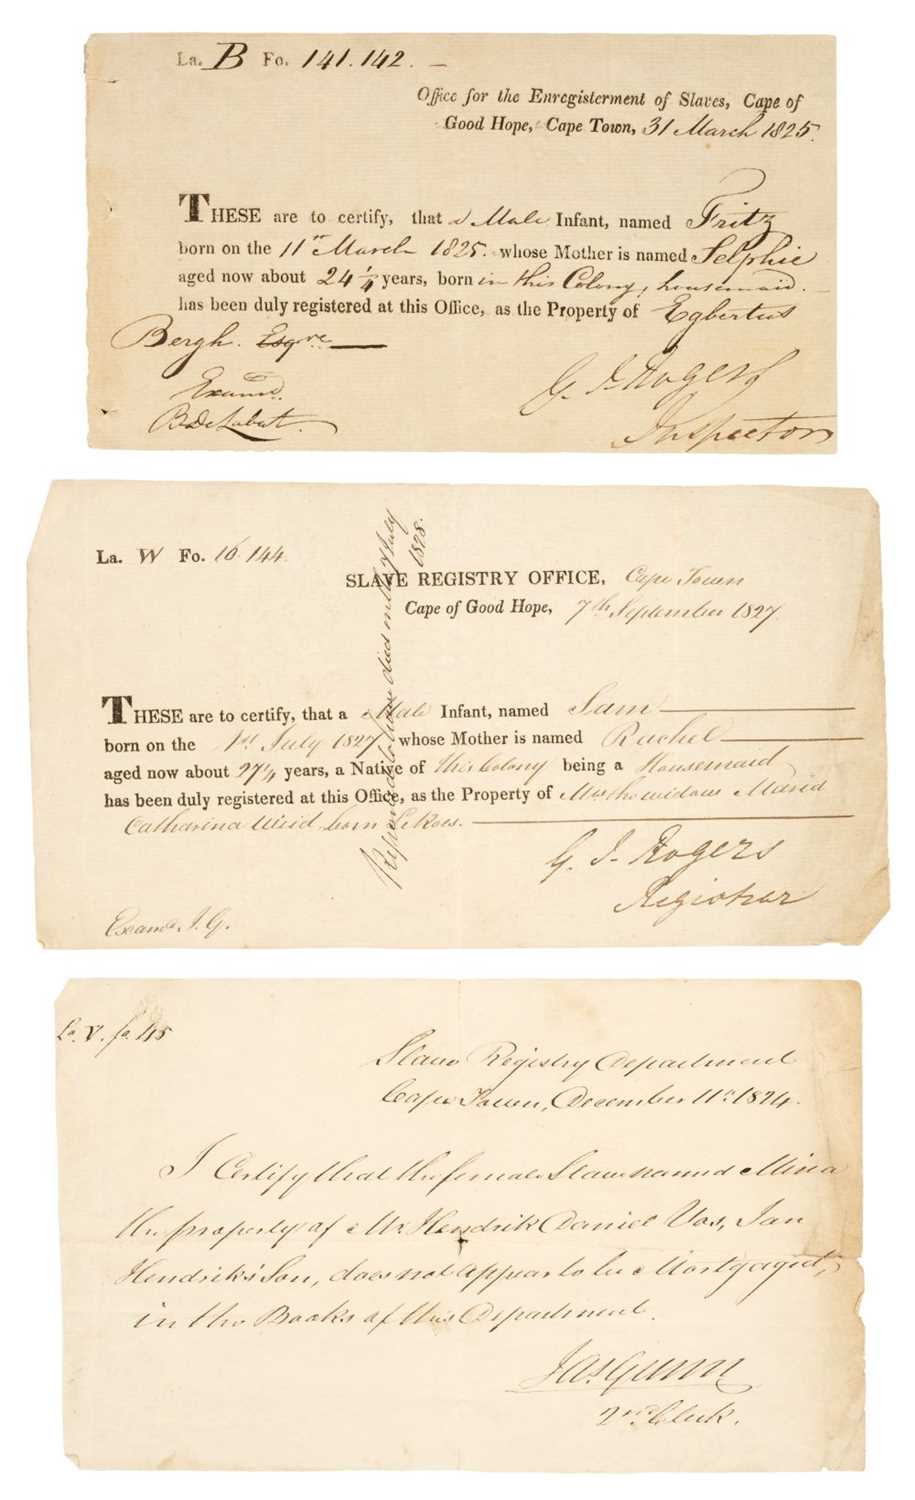 La. B Fo. 141.142. —
Office for the Enregisterment of Slaves, Cape of
Good Hope, Cape Town, 31 March 1825.
THESE are to certify, that a Male Infant, named Fritz
born on the 11th March 1825. whose Mother is named Selphie
aged now about 24 1/4 years, born in this Colony, housemaid. —
has been duly registered at this Office, as the Property of Egbertus
Bergh. Esqre —
Examd.
G. J. Rogers
B. De Labat.
Inspector
La. W Fo. 16 144.
SLAVE REGISTRY OFFICE, Cape Town
Cape of Good Hope, 7th September 1827.
THESE are to certify, that a Male Infant, named Sam
born on the 1st July 1827 whose Mother is named Rachel
aged now about 27 1/4 years, a Native of this Colony being a Housemaid
has been duly registered at this Office, as the Property of widow Maria
Catharina born
G. J. Rogers
Registrar
Examd. J. G.
to have died July
1828.
La. V. fo. 45
Slave Registry Department
Cape Town, December 11th 1824.
I Certify that the female Slave named Mina
the property of Mr. Hendrik Daniel Vos, Jan
Hendrik's Son, does not appear to be Mortgaged,
in the Books of this Department.
Jas. Gunn
2nd Clerk.